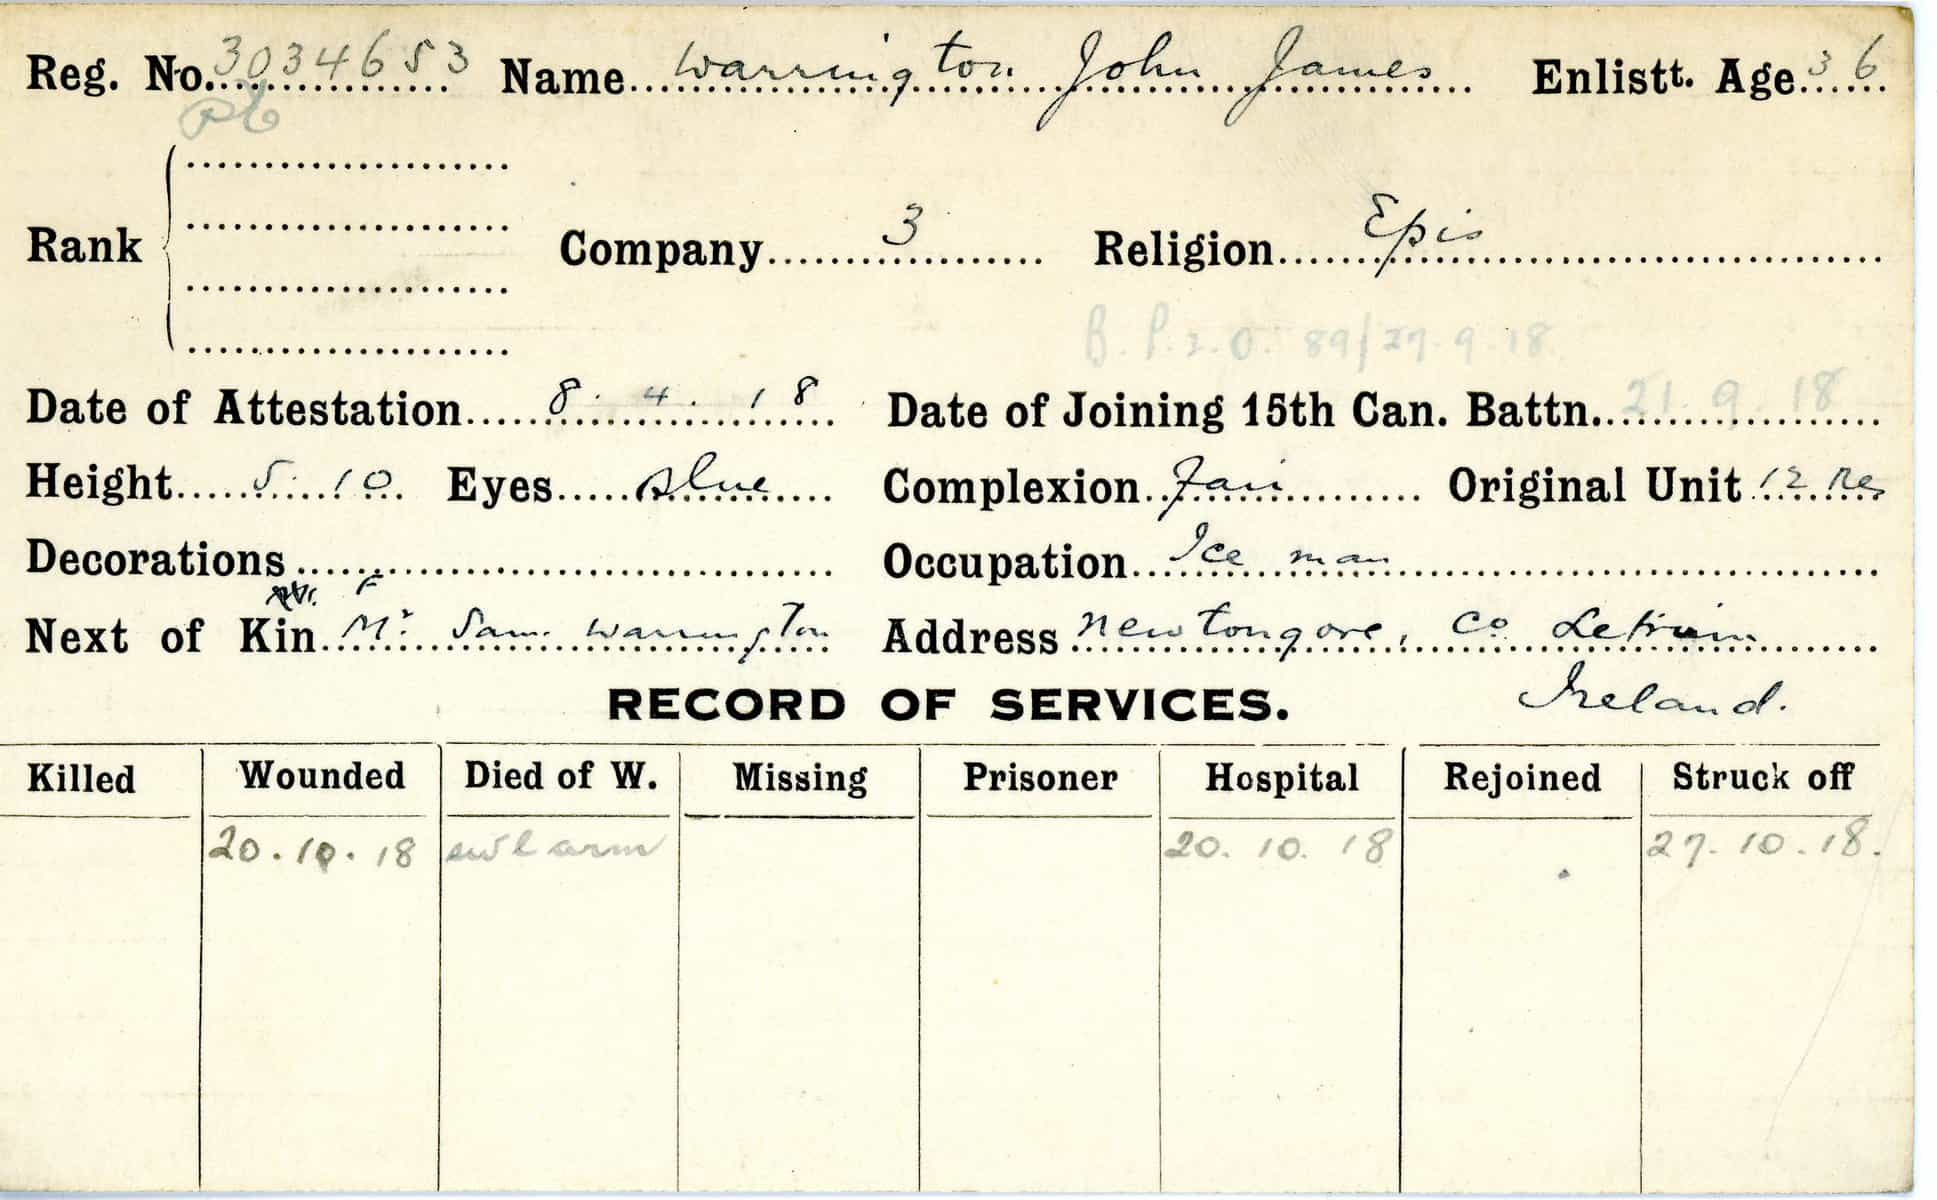 Reg. No. 3034653 Name Warrington John James Enlistt. Age 36
Rank Company 3 Religion Epis
B. P. 2. O. 89/27.9.18
Date of Attestation 8. 4. 18 Date of Joining 15th Can. Battn. 21.9.18
Height 5. 10 Eyes Blue Complexion Fair Original Unit 12 Res
Decorations Occupation Ice man
F
Next of Kin Mr. Sam. Warrington Address Newtongore, Co Letrim
Ireland.
RECORD OF SERVICES.
Killed Wounded Died of W. Missing Prisoner Hospital Rejoined Struck off
20.10.18 arm 20.10.18 27.10.18.